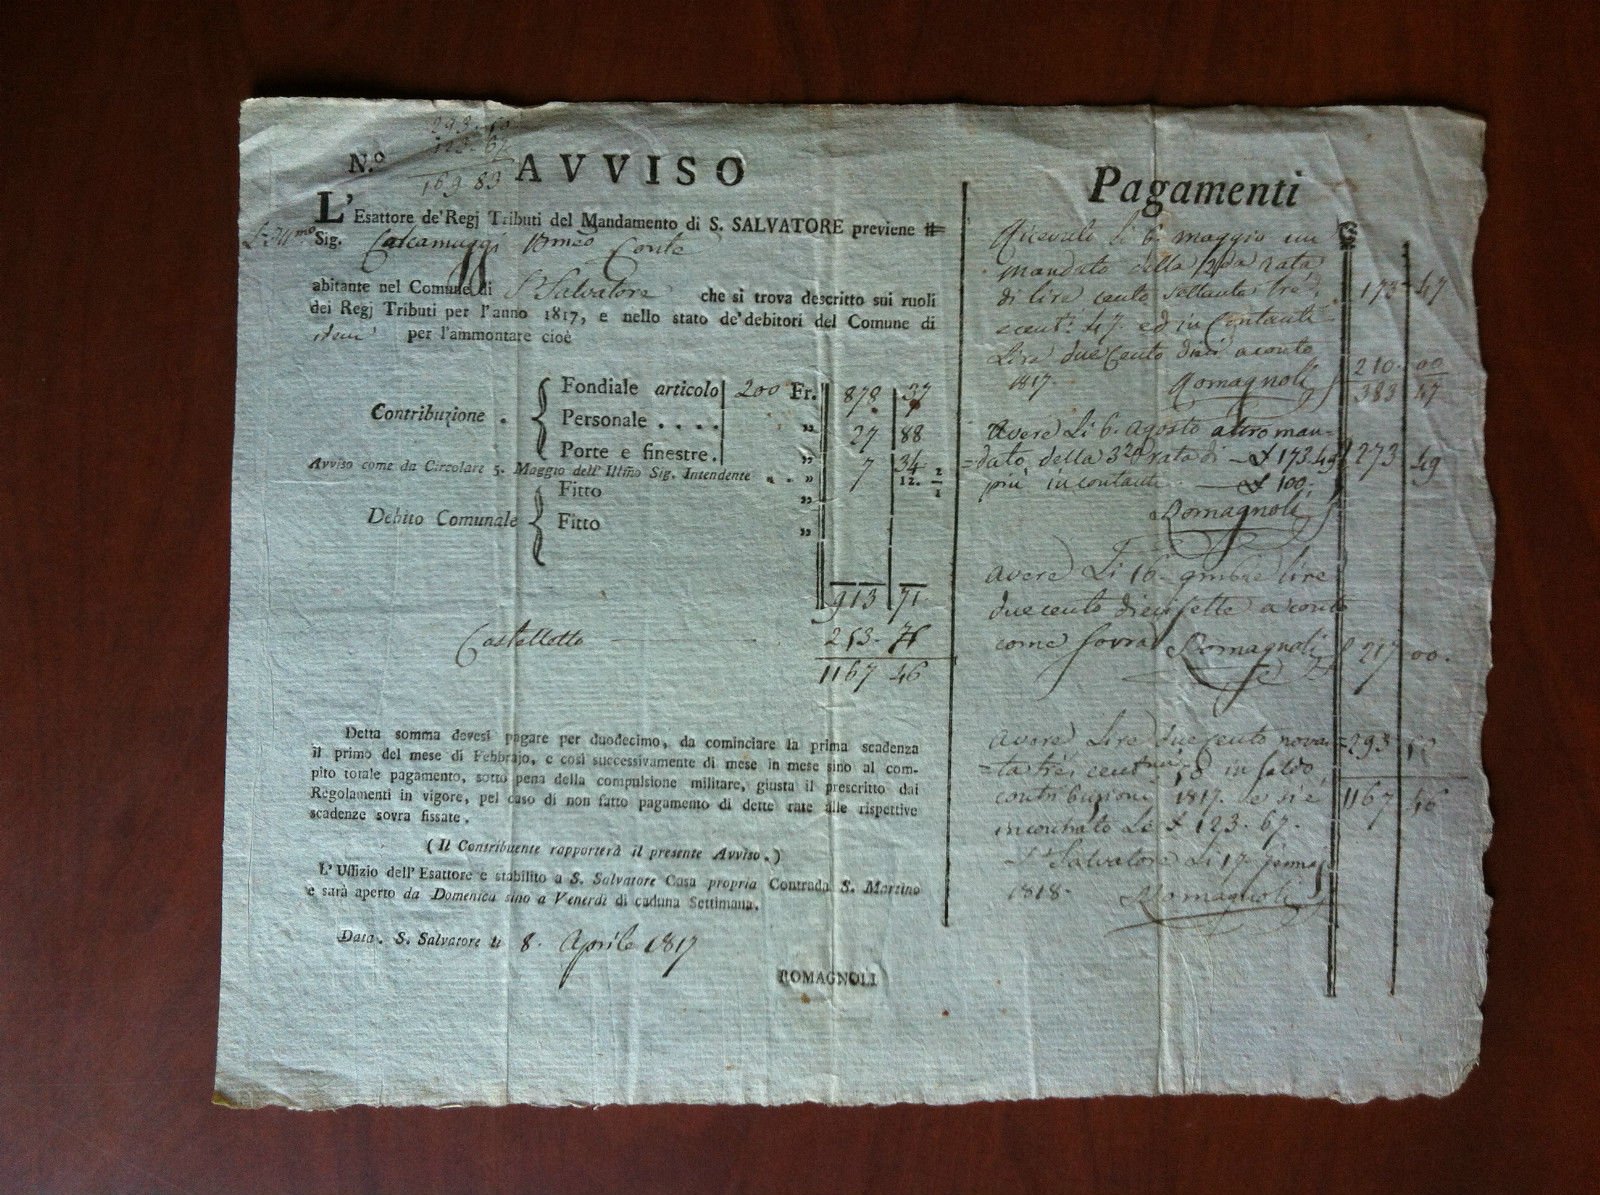 293. 50
123. 67
169 83
N.º AVVISO
L' Esattore de' Regj Tributi del Mandamento di S. SALVATORE previene il
L'Illmo Sig. Calcamuggi Conte
abitante nel Comune di S. Salvatore che si trova descritto sui ruoli
dei Regj Tributi per l'anno 1817, e nello stato de' debitori del Comune di
per l'ammontare cioè
Contribuzione .
Fondiale articolo 200 Fr. 878 37
Personale . . . . „ 27 88
Porte e finestre. „ 7 34
Avviso come da Circolare 5. Maggio dell' Illmo Sig. Intendente . . „ 12. ½
Debito Comunale
Fitto „
Fitto „
913 71
Castelletto 253. 75
1167 46
Detta somma devesi pagare per duodecimo, da cominciare la prima scadenza
il primo del mese di Febbrajo, e così successivamente di mese in mese sino al com-
pito totale pagamento, sotto pena della compulsione militare, giusta il prescritto dai
Regolamenti in vigore, pel caso di non fatto pagamento di dette rate alle rispettive
scadenze sovra fissate.
( Il Contribuente rapporterà il presente Avviso. )
L'Uffizio dell' Esattore e stabilito a S. Salvatore Casa propria Contrada S. Martino
e sarà aperto da Domenica sino a Venerdì di caduna Settimana.
Data. S. Salvatore li 8. Aprile 1817
ROMAGNOLI
Pagamenti
Ricevuto Li 6. maggio un
mandato della 2da rata
di lire cento settanta tre 173 47
e cent.i 47 ed in Contanti
Lire due Cento dieci a conto 210. 00
1817. Romagnoli 383 47
Avere Li 6. Agosto altro man-
dato della 3za rata di £ 173.49 273 49
più in contanti £ 100.
Romagnoli
Avere Li 16. 9mbre lire
due cento diecisette a conto
come sovra Romagnoli 217 00.
Avere Lire due Cento novan- 293 50
ta tre, cent.mi 50 in saldo
contribuzioni 1817. e si è 1167 46
incontrato Le £ 123. 67.
S. Salvatore Li 17. Jennajo
1818. Romagnoli